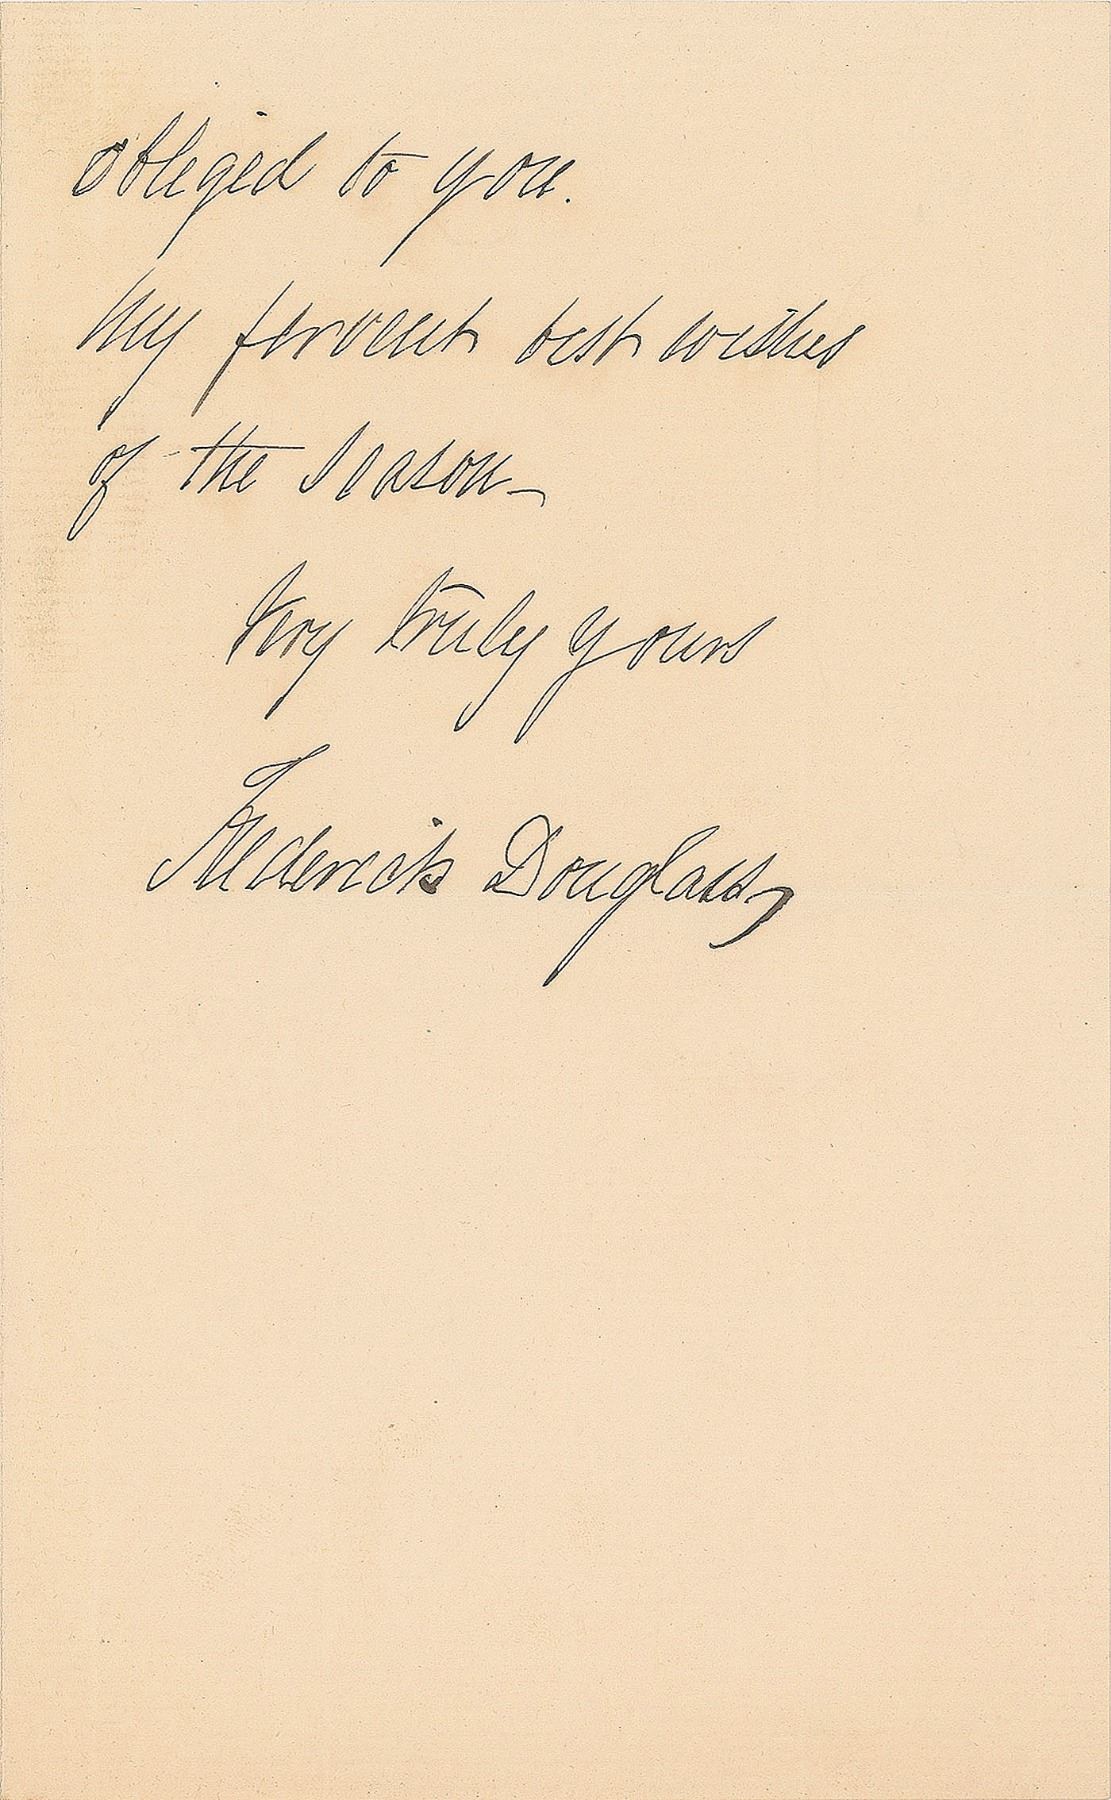 obliged to you.
My fervent best wishes
of the Season—
Very truly yours
Frederick Douglass